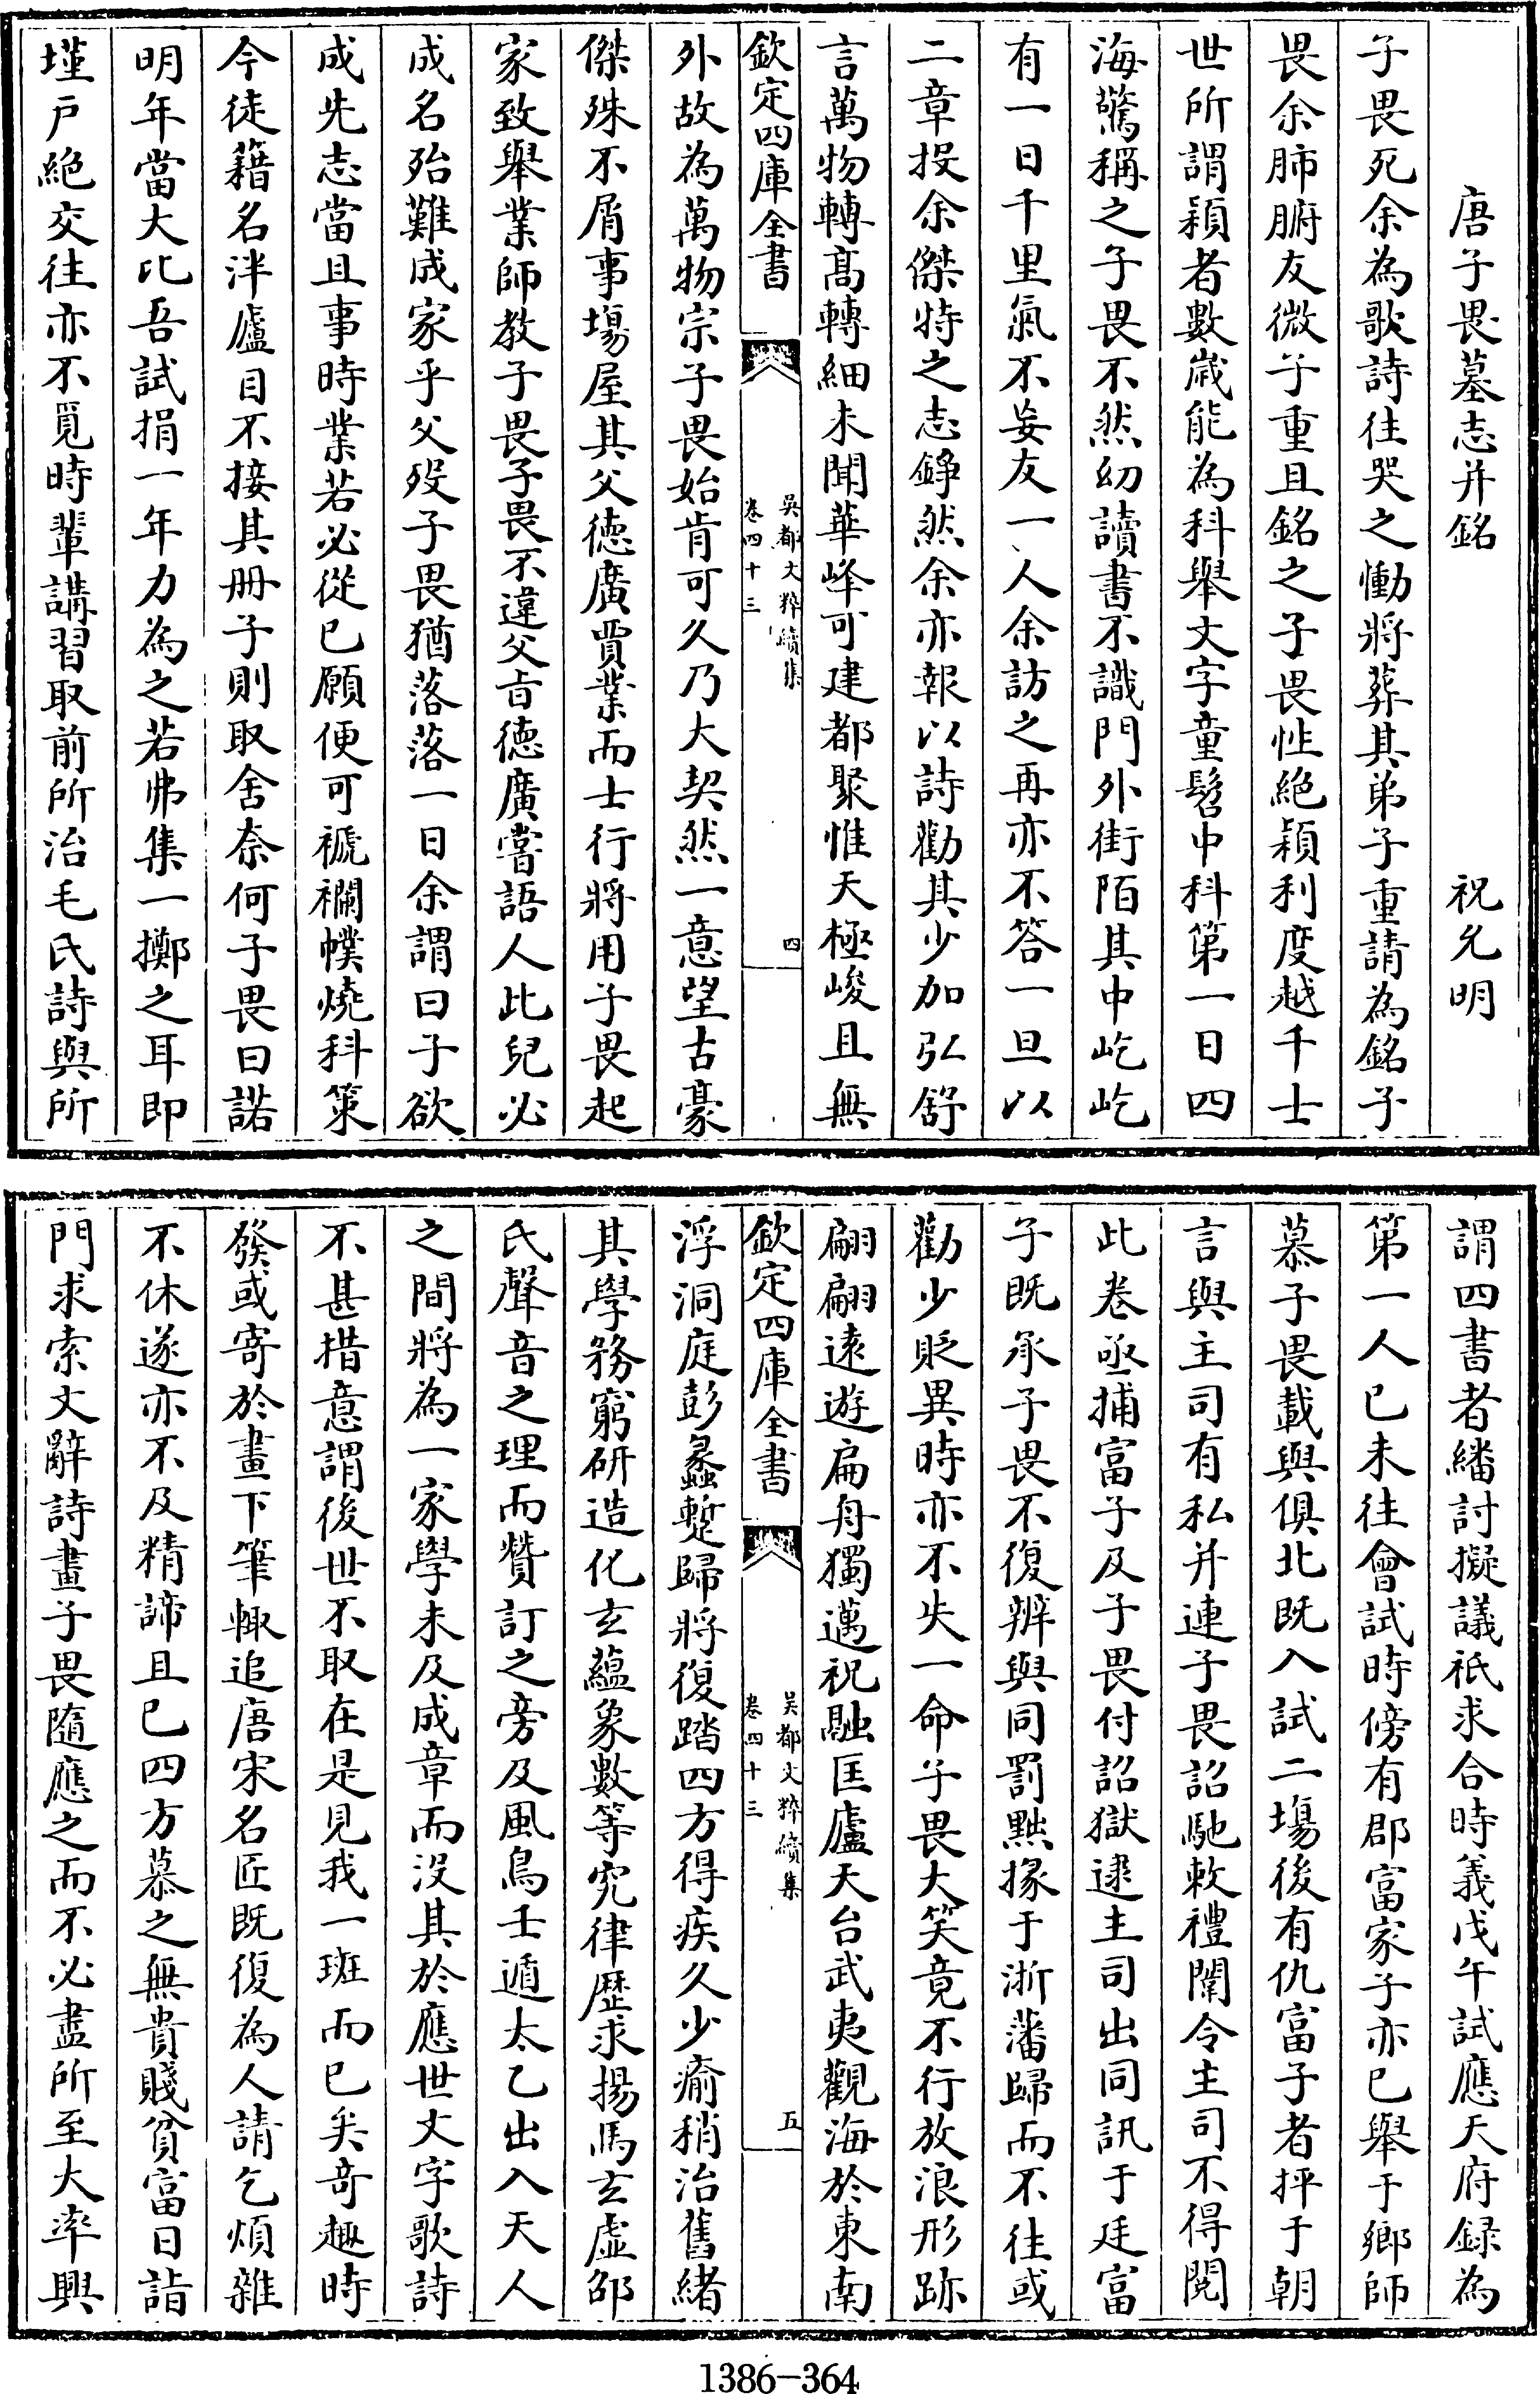 唐子畏墓志并銘　祝允明
子畏死余為歌詩往哭之慟將葬其弟子重請為銘子
畏余肺腑友微子重且銘之子畏性絕穎利度越千士
世所謂穎者數歲能為科舉文字童髫中科第一日四
海驚稱之子畏不然幼讀書不識門外街陌其中屹屹
有一日千里氣不妄友一人余訪之再亦不答一旦以
二章投余傑特之志錚然余亦報以詩勸其少加弘舒
言萬物轉髙轉細未聞華峰可建都聚惟天極峻且無
欽定四庫全書
吳都文粹續集
卷四十三
四
外故為萬物宗子畏始肯可久乃大契然一意望古豪
傑殊不屑事場屋其父德廣賈業而士行將用子畏起
家致舉業師教子畏子畏不違父旨德廣嘗語人此兒必
成名殆難成家乎父歿子畏猶落落一日余謂曰子欲
成先志當且事時業若必從已願便可褫襴幞燒科策
今徒藉名泮廬目不接其冊子則取舍奈何子畏曰諾
明年當大比吾試捐一年力為之若弗集一擲之耳即
墐户絶交往亦不覓時輩講習取前所治毛氏詩與所
謂四書者繙討擬議祇求合時義戊午試應天府録為
第一人已未往會試時傍有郡富家子亦已舉于鄉師
慕子畏載與俱北既入試二塲後有仇富子者抨于朝
言與主司有私并連子畏詔馳敕禮闈令主司不得閱
此卷亟捕富子及子畏付詔獄逮主司出同訊于廷富
子既承子畏不復辨與同罰黜掾于浙藩歸而不往或
勸少貶異時亦不失一命子畏大笑竟不行放浪形跡
翩翩遠遊扁舟獨邁祝融匡廬天台武夷觀海於東南
欽定四庫全書
吳都文粹續集
卷四十三
五
浮洞庭彭蠡蹔歸將復踏四方得疾久少瘉稍治舊緒
其學務窮研造化玄藴象數等究律歴求揚馬玄虚邵
氏聲音之理而贊訂之旁及風鳥壬遁太乙出入天人
之間將為一家學未及成章而沒其於應世文字歌詩
不甚措意謂後世不取在是見我一斑而已矣竒趣時
發或寄於畫下筆輒追唐宋名匠既復為人請乞煩雜
不休遂亦不及精諦且已四方慕之無貴賤貧富日詣
門求索文辭詩畫子畏隨應之而不必盡所至大率興
1386-364